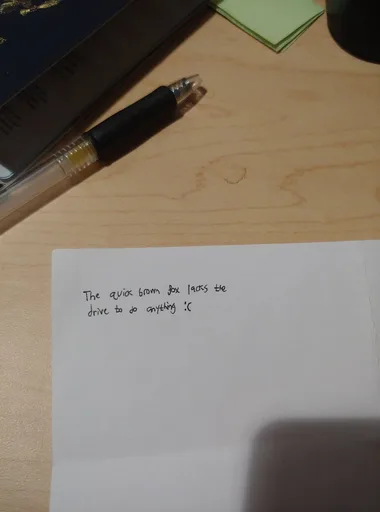 The quick brown fox lacks the
drive to do anything :(